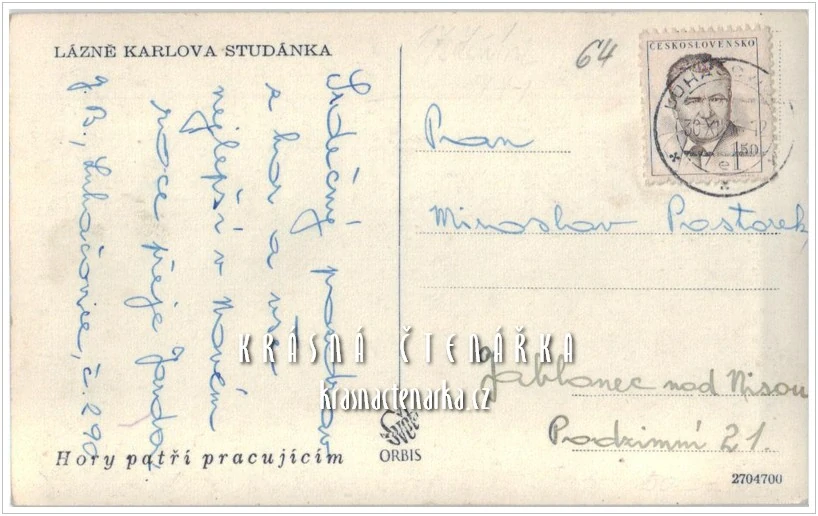 LÁZNĚ KARLOVA STUDÁNKA
Srdečný pozdrav
z hor a vše
nejlepší v Novém
roce přeje Janda,
J. B., Luhačovice, č. 290
Hory patří pracujícím
ORBIS
64
ČESKOSLOVENSKO
1.50
Pan
Miroslav Pastorek,
Jablonec nad Nisou
Podzimní 21.
2704700
KRÁSNÁ ČTENÁŘKA
krasnactenarka.cz